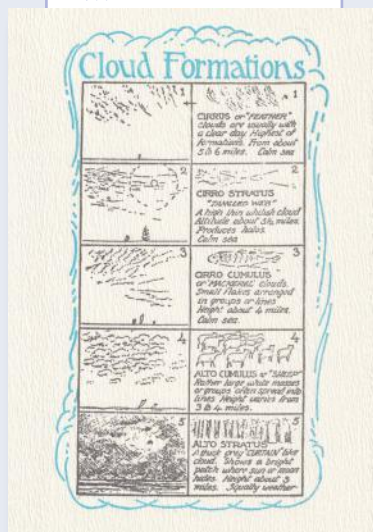 Cloud Formations
1
1
CIRRUS or "FEATHER"
clouds are usually with
a clear day Highest of
formations. From about
5 to 6 miles. Calm sea
2
2
CIRRO STRATUS
"TANGLED WEB"
A high thin whitish cloud
Altitude about 5½ miles.
Produces halos.
Calm sea.
3
3
CIRRO CUMULUS
or "MACKEREL" clouds.
Small flakes arranged
in groups or lines
Height about 4 miles.
Calm sea.
4
4
ALTO CUMULUS or "SHEEP"
Rather large white masses
or groups often spread into
lines Height varies from
3 to 4 miles.
5
5
ALTO STRATUS
A thick grey "CURTAIN" like
cloud. Shows a bright
patch where sun or moon
hides. Height about 3
miles. Squally weather